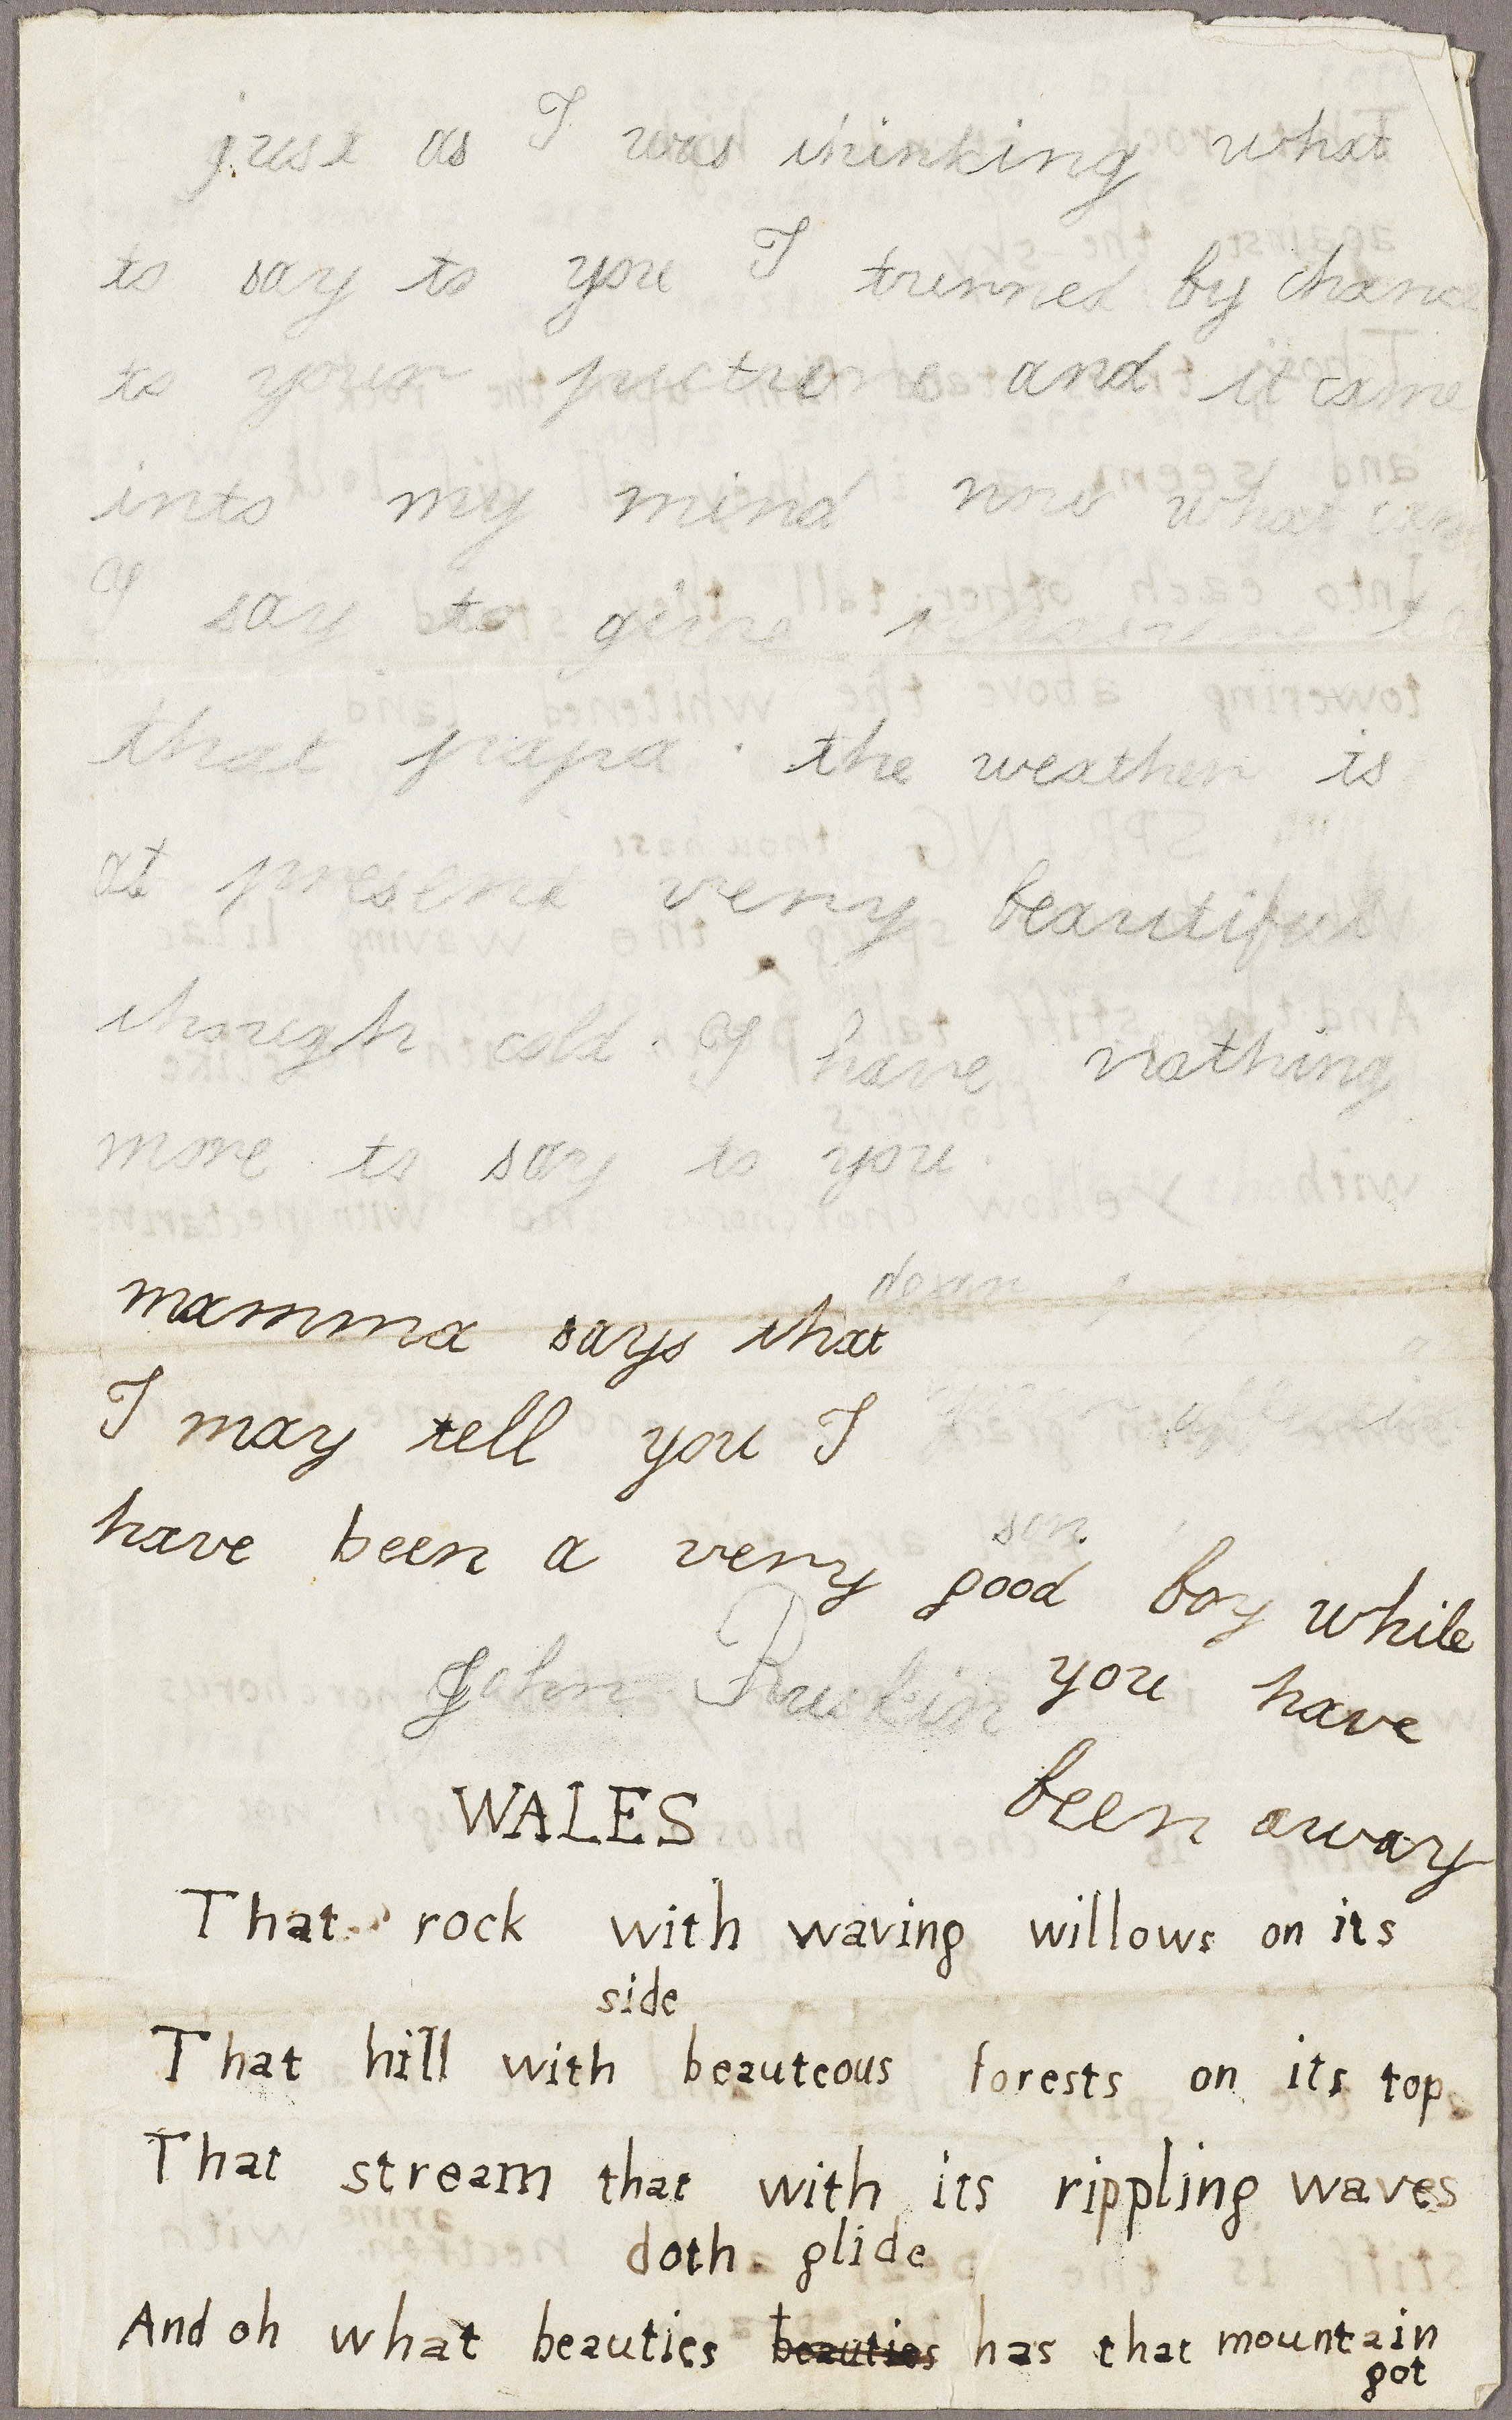 just as I was thinking what
to say to you I turned by chance
to your picture and it came
into my mind now what can
I say to give pleasure to
that papa. the weather is
at present very beautiful
though cold. I have nothing
more to say to you
mamma says that
I may tell you I
have been a very good boy while
you have
been away
dear
son
John Ruskin
WALES
That rock with waving willows on its
side
That hill with beauteous forests on its top
That stream that with its rippling waves
doth glide
And oh what beauties beauties has that mountain
got